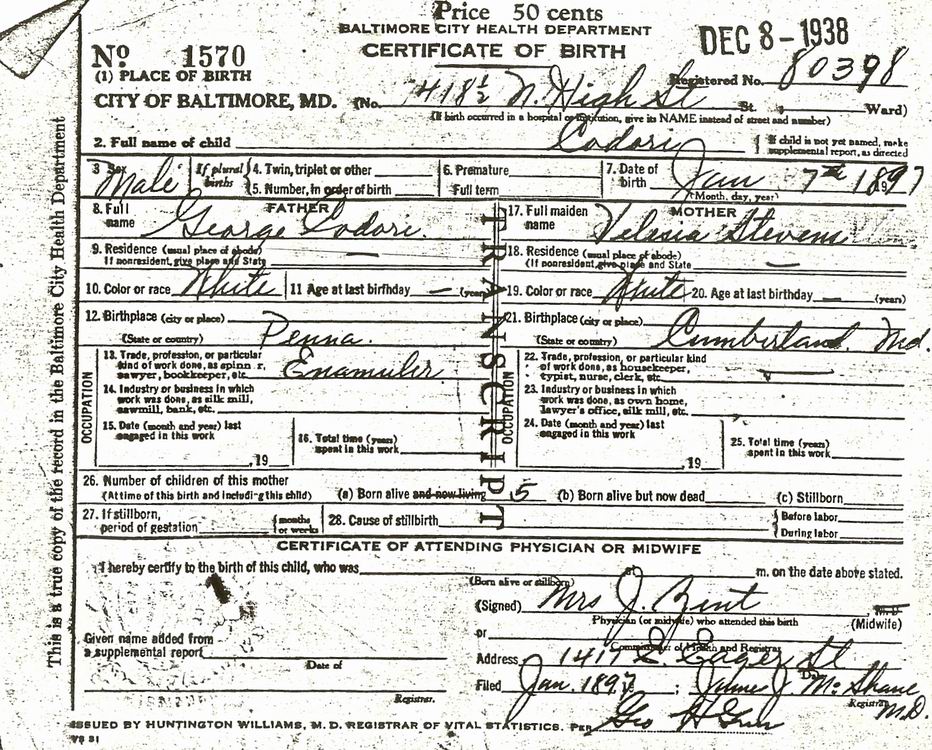 Price 50 cents
BALTIMORE CITY HEALTH DEPARTMENT
CERTIFICATE OF BIRTH
DEC 8-1938
No. 1570
Registered No. 80398
(1) PLACE OF BIRTH
CITY OF BALTIMORE, MD. (No. 418½ N. High St St. Ward)
(If birth occurred in a hospital or institution, give its NAME instead of street and number)
2. Full name of child Codori { If child is not yet named, make supplemental report, as directed
3 Sex Male If plural births { 4. Twin, triplet or other 5. Number, in order of birth 6. Premature Full term 7. Date of birth Jan 7th 1897 (Month, day, year)
FATHER
8. Full name George Codori.
9. Residence (usual place of abode) (If nonresident, give place and State) —
10. Color or race White 11 Age at last birthday — (years)
12. Birthplace (city or place) (State or country) Penna.
OCCUPATION
13. Trade, profession, or particular kind of work done, as spinner, sawyer, bookkeeper, etc.
14. Industry or business in which work was done, as silk mill, sawmill, bank, etc.
15. Date (month and year) last engaged in this work , 19
16. Total time (years) spent in this work
TRANSCRIPT
MOTHER
17. Full maiden name Stevens
18. Residence (usual place of abode) (If nonresident, give place and State) —
19. Color or race White 20. Age at last birthday — (years)
21. Birthplace (city or place) (State or country) Cumberland Md.
OCCUPATION
22. Trade, profession, or particular kind of work done, as housekeeper, typist, nurse, clerk, etc.
23. Industry or business in which work was done, as own home, lawyer's office, silk mill, etc.
24. Date (month and year) last engaged in this work , 19
25. Total time (years) spent in this work
26. Number of children of this mother
(At time of this birth and including this child) (a) Born alive and now living 5 (b) Born alive but now dead (c) Stillborn
27. If stillborn, period of gestation { months or weeks 28. Cause of stillbirth { Before labor During labor
CERTIFICATE OF ATTENDING PHYSICIAN OR MIDWIFE
I hereby certify to the birth of this child, who was at m. on the date above stated.
(Born alive or stillborn)
(Signed) Mrs J. , M.D.
Physician (or midwife) who attended this birth (Midwife)
or
Commissioner of Health and Registrar
Given name added from a supplemental report
Date of
Registrar.
Address 1417 E. Eager St
Filed Jan. 1897; J. McShane M.D.
Registrar
ISSUED BY HUNTINGTON WILLIAMS, M. D. REGISTRAR OF VITAL STATISTICS. PER Geo H
VS 31
This is a true copy of the record in the Baltimore City Health Department